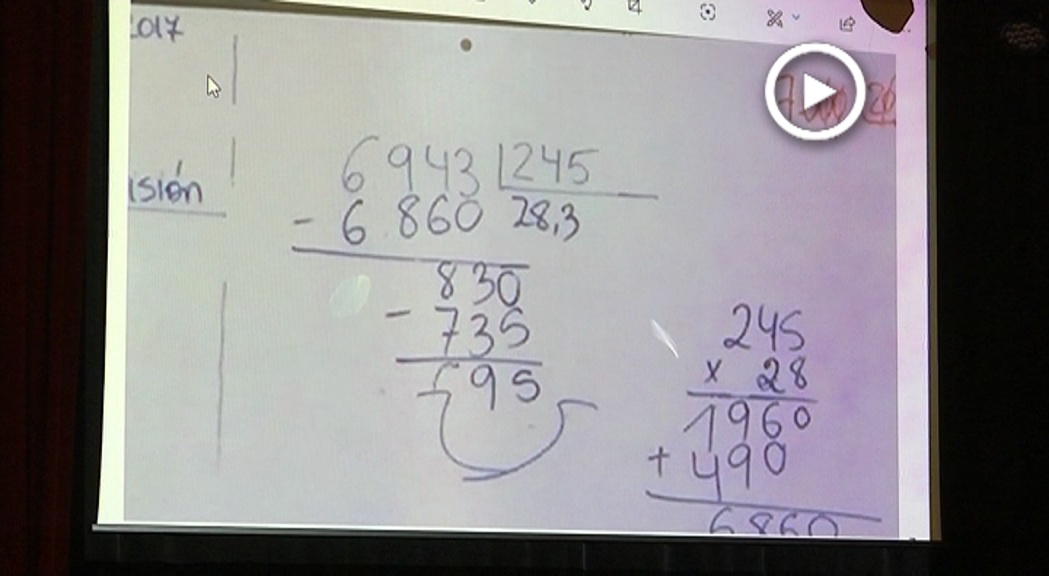 2017
isión
6943 245
- 6860 28,3
830
- 735
95
245
x 28
1960
+ 490
6860